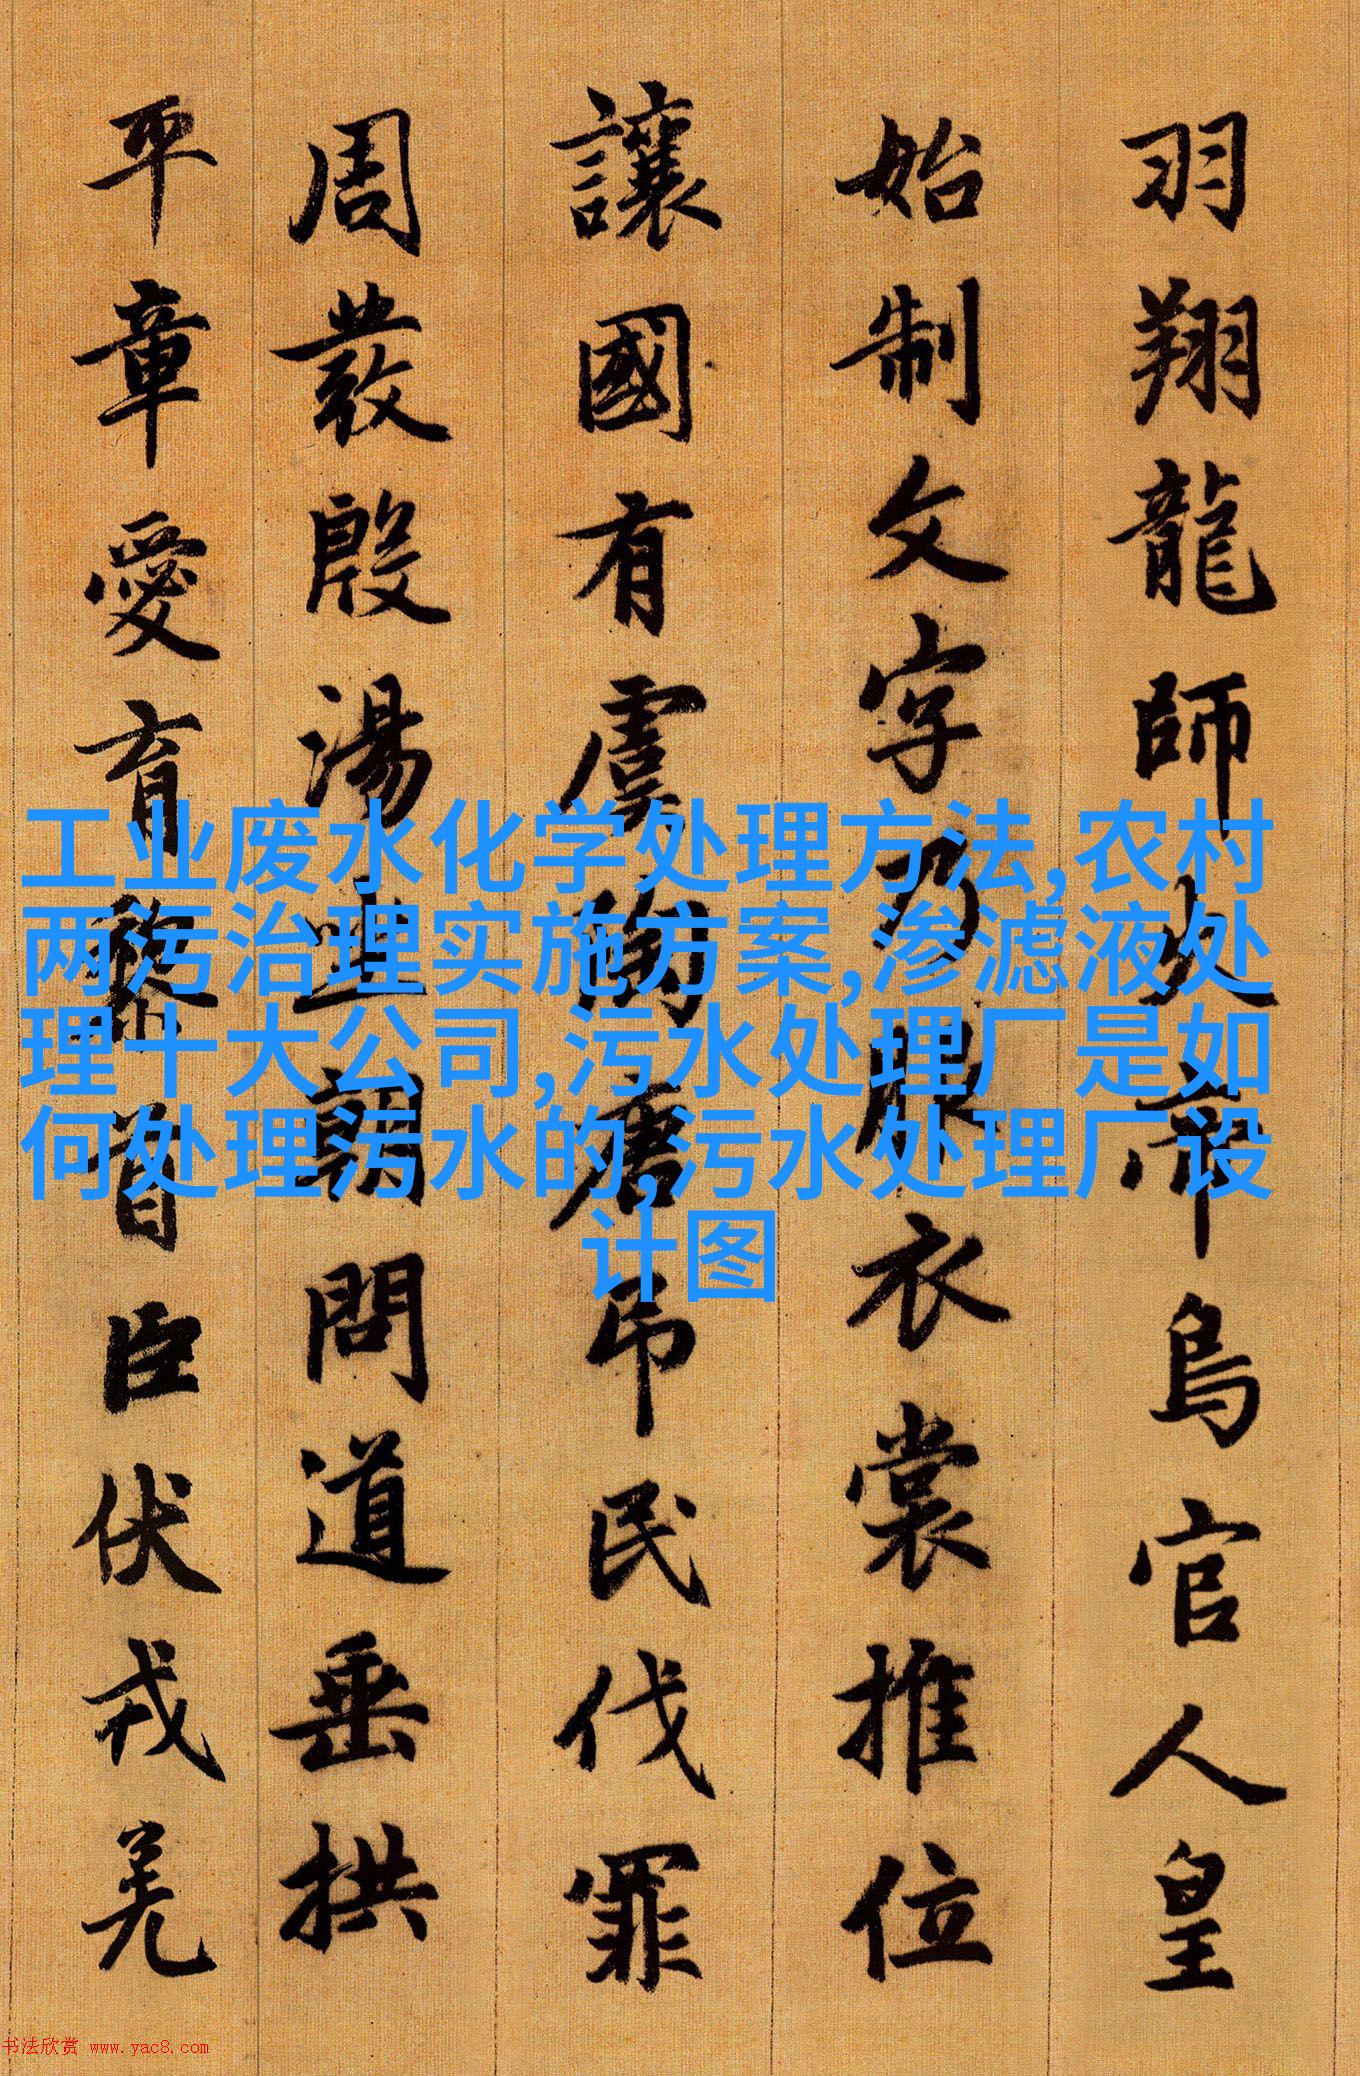 羽翔龍師火帝鳥官人皇
始制文字乃服衣裳推位
讓國有虞陶唐吊民伐罪
周發殷湯坐朝問道垂拱
平章愛育黎首臣伏戎羌
工业废水化学处理方法,农村
两污治理实施方案,渗滤液处
理十大公司,污水处理厂是如
何处理污水的,污水处理厂设
计图
书法欣赏 www.yac8.com